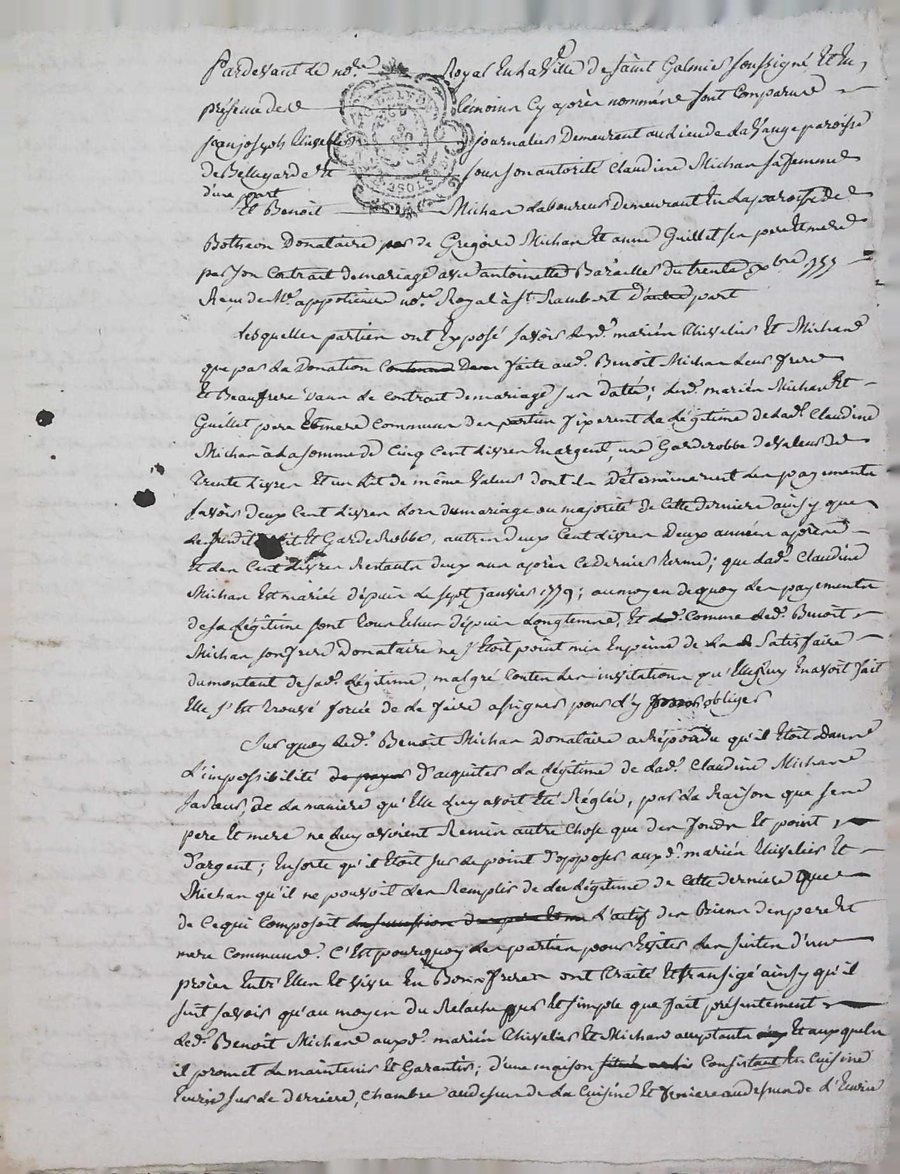 Pardevant le no.re Royal En la Ville de saint Galmier soussigné Et En
présence des témoins Cy après nommés sont Comparus
jean joseph journalier Demeurant au lieu de la paroisse
de Bellegarde Et sous son autorité Claudine Michan sa femme
d'une part
Et Benoit Michan Laboureur Demeurant En la paroisse de
Botheon Donataire de Gregoire Michan Et anne Guillet ses pere Et mere
par son Contrat de mariage avec antoinette du trente
Recu de Me. no.re Royal à St. Rambert D'autre part
Lesquelles parties ont Exposé savoir led. mariés Et Michan
que par la Donation faite aud. Benoit Michan Leur frere
Et Beaufrere dans le contrat de mariage sus datté; led. mariés Michan Et
Guillet pere Et mere Communs des parties fixerent la Légitime de lad. Claudine
Michan à la somme de Cinq Cent livres En argent, une Garderobbe de valeur de
trente livres Et un Lit de même valeur dont ils Déterminerent les payements
savoir deux Cent livres Lors du mariage ou majorité de Cette derniere ainsy que
Lit Et Garderobbe, autres deux Cent livres Deux années après
Et les Cent livres Restants deux ans après Ce dernier terme; que lad. Claudine
Michan Est mariée depuis le sept janvier 1779; au moyen de quoy les payements
de sa Légitime sont tous Echus depuis Longtemps, Et Comme led. Benoit
Michan son frere Donataire ne s'Etoit point mis En peine de la Satisfaire
du montant de sad. Légitime, malgré toutes les invitations qu'Elle luy En avoit fait
Elle s'Est trouvé forcée de le faire assigner pour l'y obliger
Sur quoy led. Benoit Michan Donataire a Répondu qu'il Etoit dans
L'impossibilité D'aquiter la Légitime de lad. Claudine Michan
sa sœur, de la maniere qu'Elle luy avoit Eté Réglée, par la Raison que ses
pere Et mere ne luy avoient Remis autre Chose que des fonds Et point
D'argent; Ensorte qu'il Etoit sur le point d'opposer aux d. mariés Et
Michan qu'il ne pouvoit les Remplir de la Légitime de Cette derniere que
de Ce qui Composoit L'actif des Biens des pere Et
mere Communs. C'Est pourquoy les parties pour Eviter les suites d'un
procès Entr'Elles Et vivre En Bons freres ont traité Et transigé ainsy qu'il
suit savoir qu'au moyen du Relache pur Et simple que fait présentement
led. Benoit Michan aux d. mariés Et Michan acceptants Et auxquels
il promet de maintenir Et Garantir; d'une maison Consistant En Cuisine
Ecurie sur le derriere, Chambre au dessus de La Cuisine Et feniere au dessus de L'Ecurie